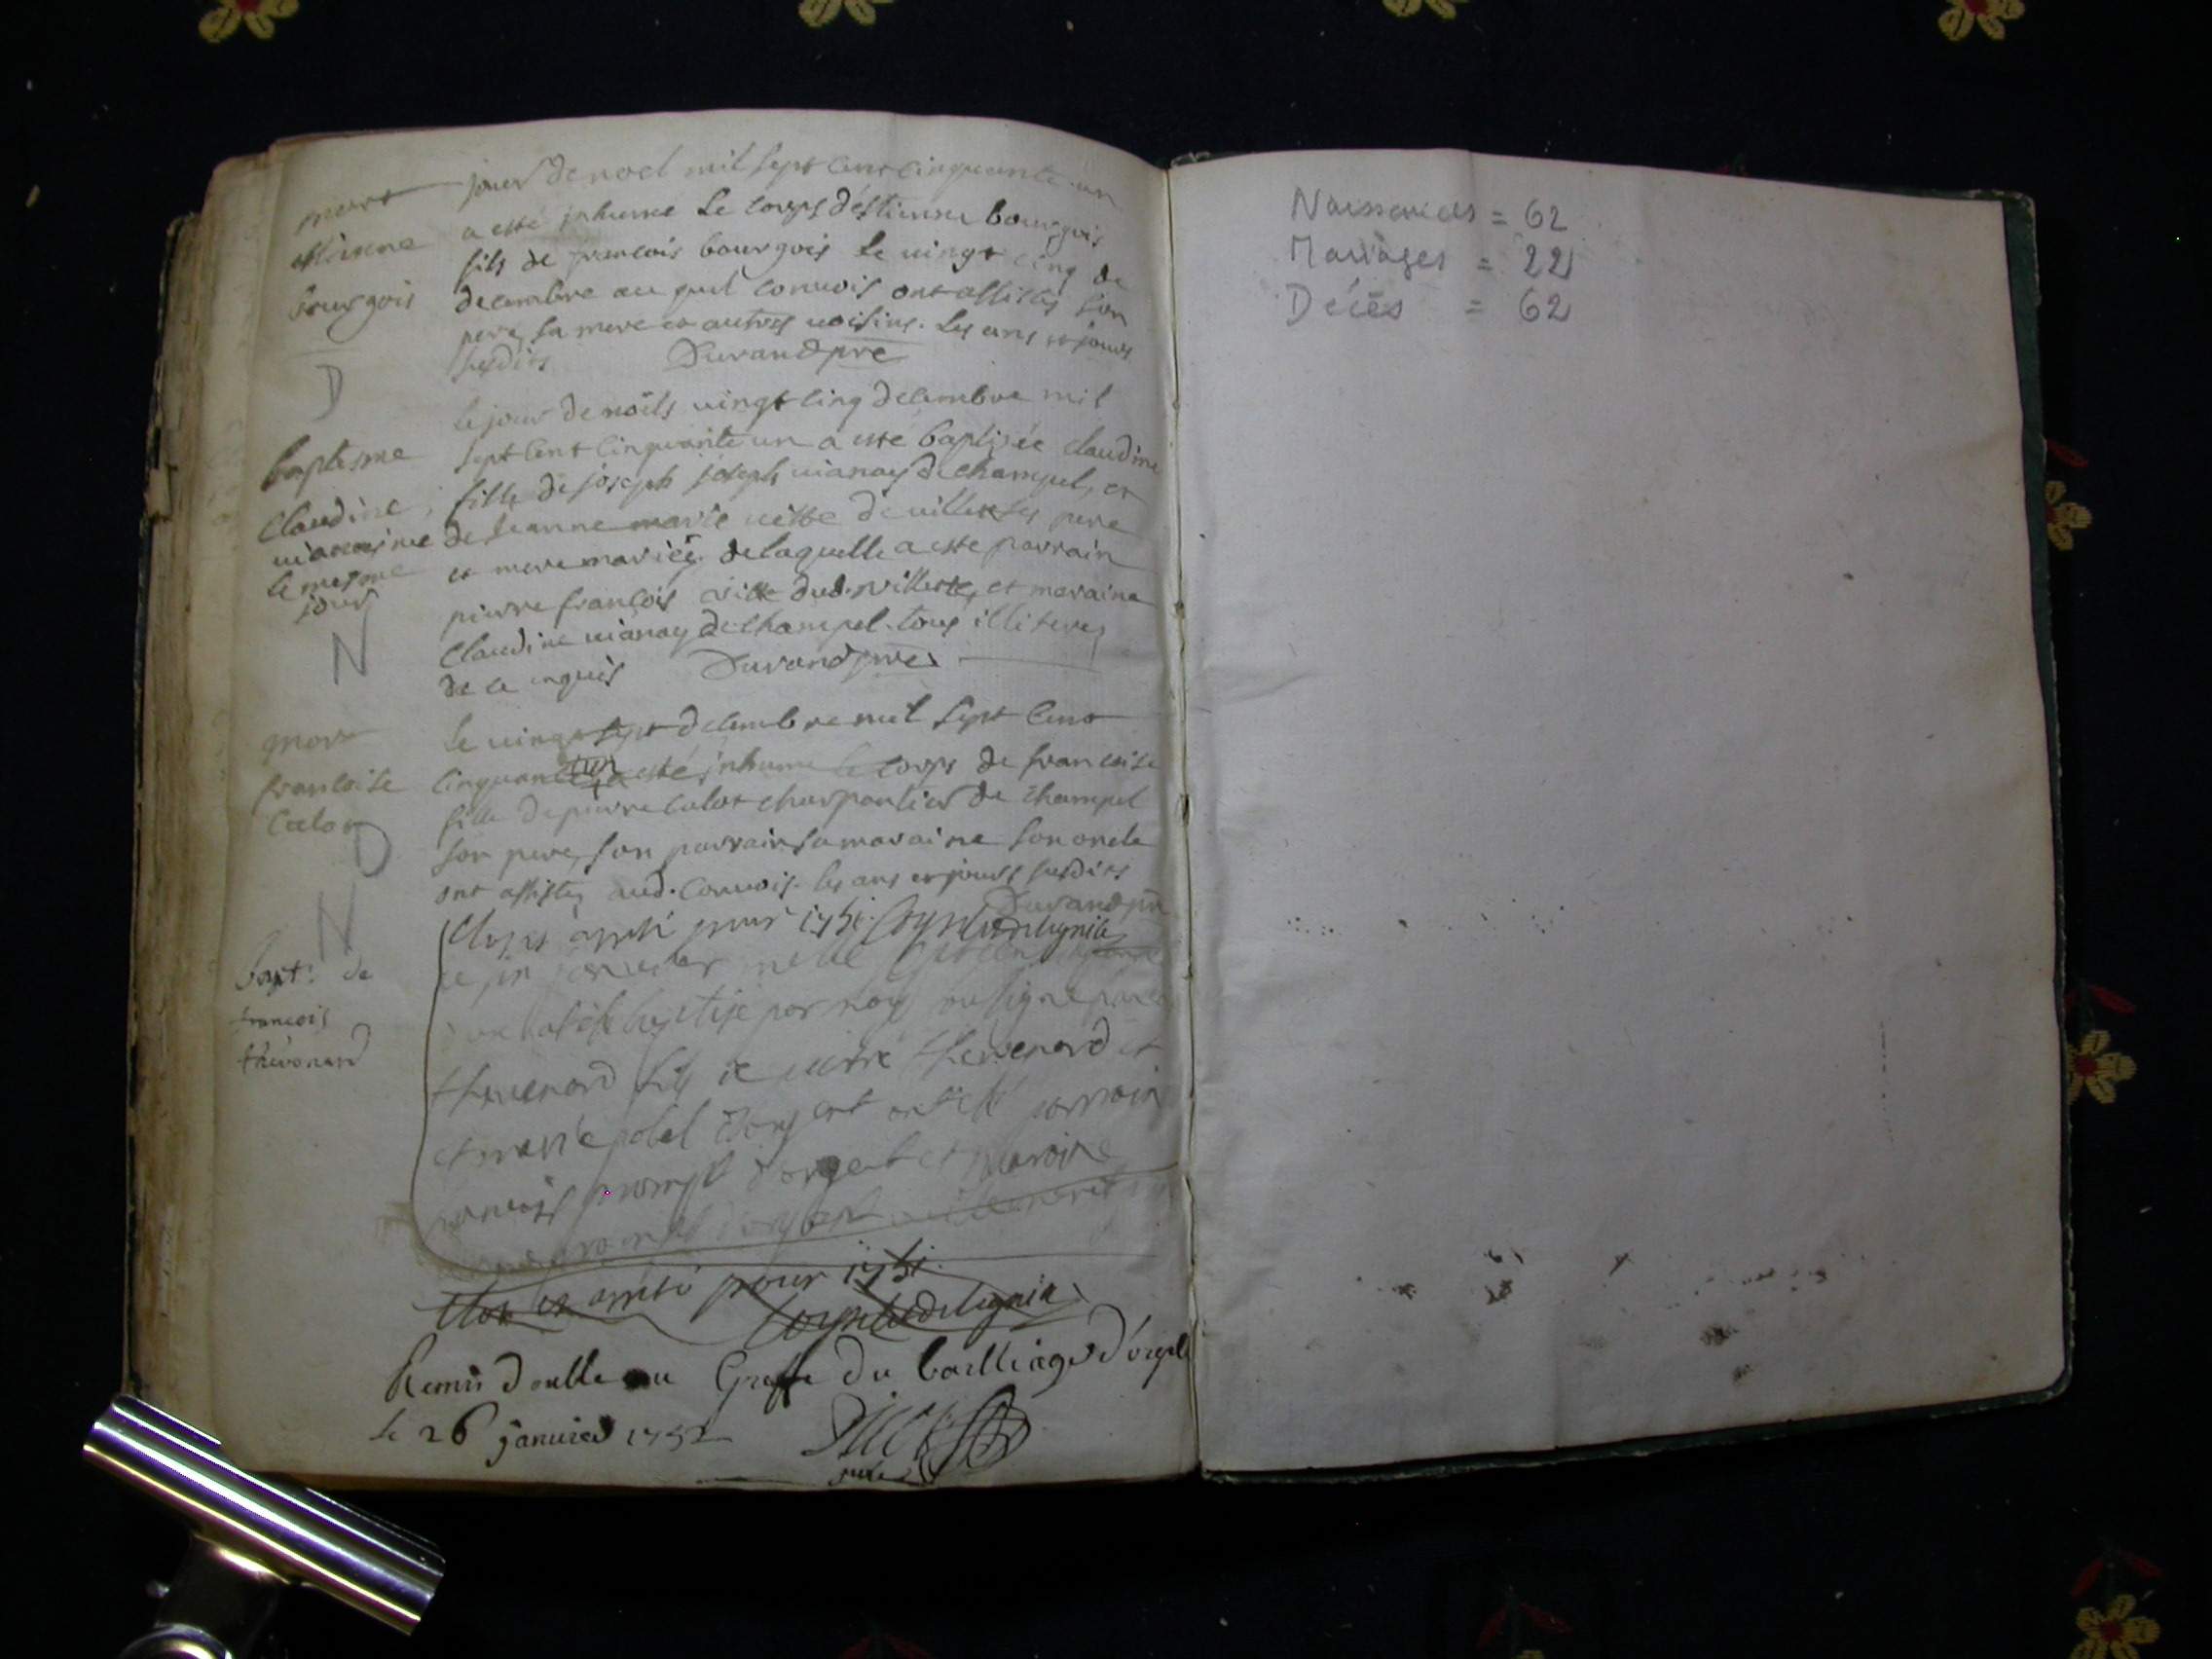 mort
estienne
bourgois
D
jour de noel mil sept cent cinquante un
a esté inhumé le corps d'estienne bourgois
fils de francois bourgois le vingt cinq de
decembre au quel convois ont assistés son
pere, sa mere et autres voisins. les ans et jours
susdits Durand pre
baptesme
Claudine
le mesme
jour
N
le jour de noëls vingt cinq decembre mil
sept cent cinquante un a esté baptisée claudine
fille de joseph joseph vianay de champel, et
de jeanne marie vitte de villette, pere
et mere mariés. de laquelle a esté parrain
pierre françois vitte dud. villette, et maraine
Claudine vianay de champel. tous illiteres
de ce enquis Durand pre
mort
francoise
Calot
D
le vingt sept decembre mil sept cent
cinquante un a esté inhumé le corps de francoise
fille de pierre calot charpantier de champel
son pere, son parrain sa maraine son oncle
ont assistés aud. convois. les ans et jours susdits
Durand pre
N
bapt: de
francois
thévenard
Clos et arrêté pour 1751.
baptisé par moy soussigné
thevenard fils de thevenard et
et marie d'orgent ont été parrain
francois prompt d'orgent et maraine
Clos et arrêté pour 1751.
Remis double au Greffe du bailliage d'orgelet
le 26 janvier 1752
Naissances = 62
Mariages = 22
Décès = 62